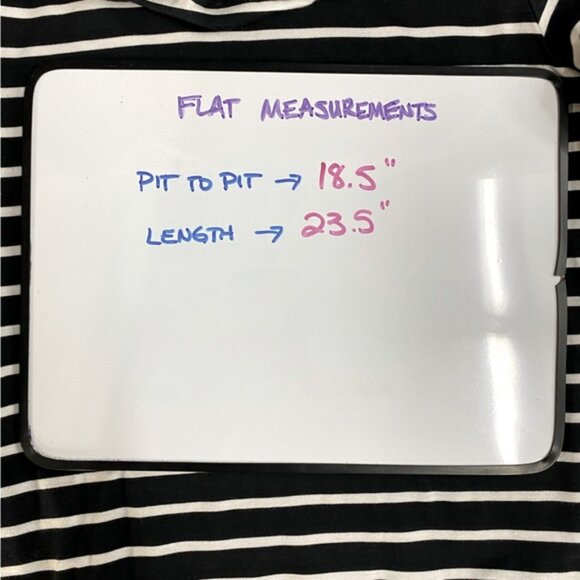 FLAT MEASUREMENTS
PIT TO PIT → 18.5"
LENGTH → 23.5"